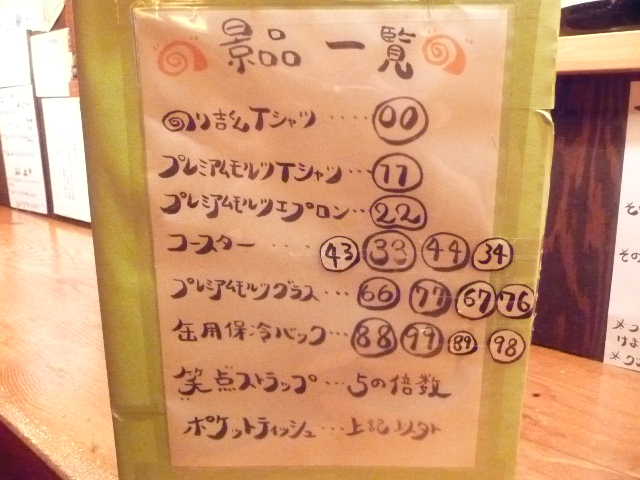 景品一覧
のり吉くんTシャツ・・・・・00
プレミアムモルツTシャツ・・・11
プレミアムモルツエプロン・・22
コースター・・・・43 33 44 34
プレミアムモルツグラス・・・66 77 67 76
缶用保冷バック・・・88 99 89 98
笑点ストラップ・・・5の倍数
ポケットティッシュ・・・上記以外